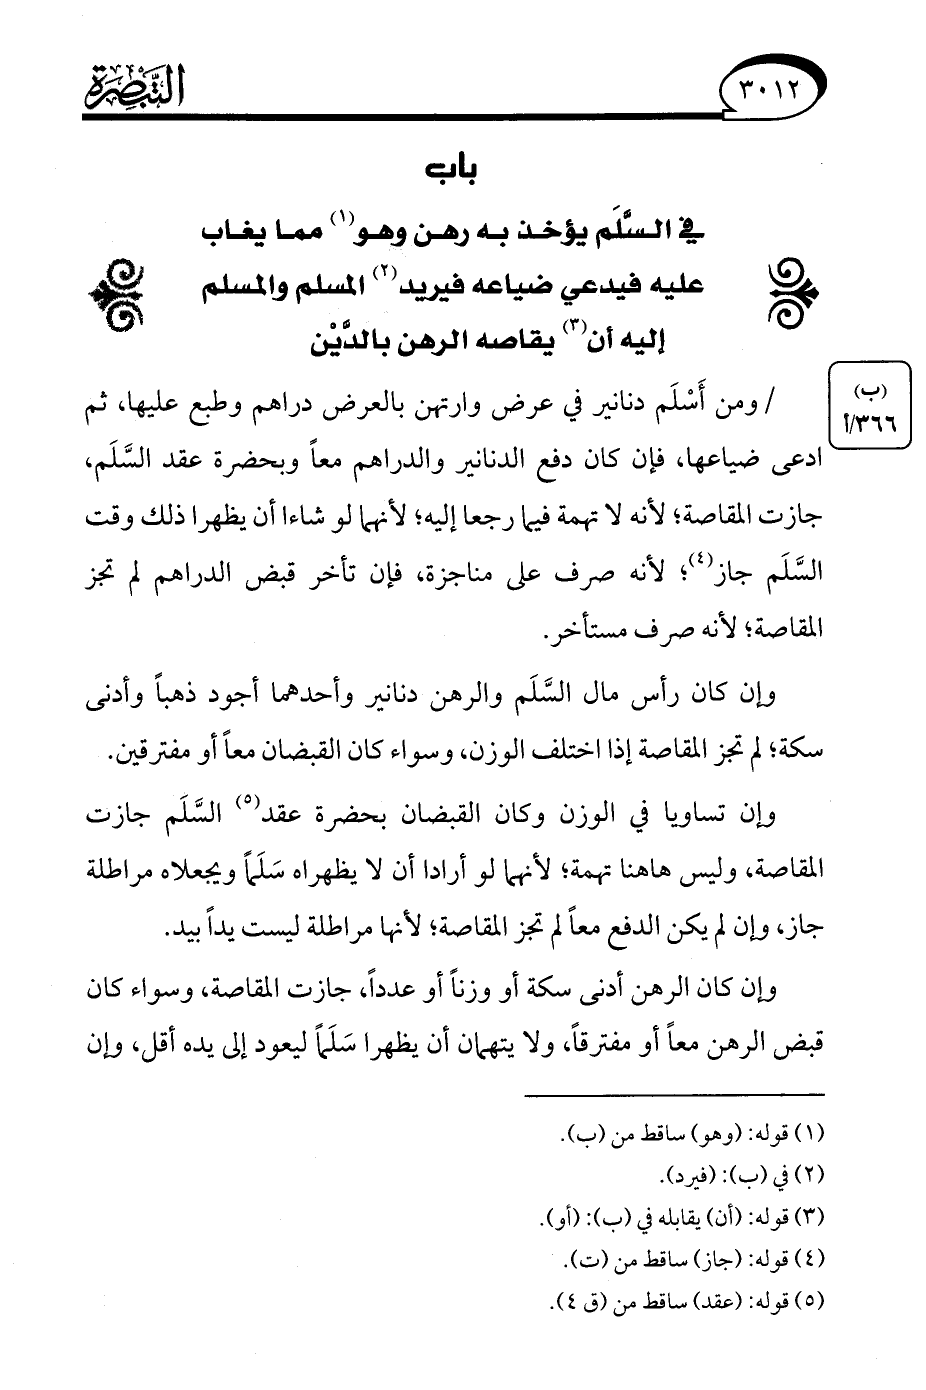 التبصرة
٣٠١٢
باب
في السَّلَم يؤخذ به رهن وهو(١) مما يغاب
عليه فيدعي ضياعه فيريد(٢) المسلم والمسلم
إليه أن(٣) يقاصه الرهن بالدَّيْن
(ب)
٣٦٦/أ
/ ومن أَسْلَم دنانير في عرض وارتهن بالعرض دراهم وطبع عليها، ثم
ادعى ضياعها، فإن كان دفع الدنانير والدراهم معاً وبحضرة عقد السَّلَم،
جازت المقاصة؛ لأنه لا تهمة فيما رجعا إليه؛ لأنهما لو شاءا أن يظهرا ذلك وقت
السَّلَم جاز(٤)؛ لأنه صرف على مناجزة، فإن تأخر قبض الدراهم لم تجز
المقاصة؛ لأنه صرف مستأخر.
وإن كان رأس مال السَّلَم والرهن دنانير وأحدهما أجود ذهباً وأدنى
سكة؛ لم تجز المقاصة إذا اختلف الوزن، وسواء كان القبضان معاً أو مفترقين.
وإن تساويا في الوزن وكان القبضان بحضرة عقد(٥) السَّلَم جازت
المقاصة، وليس هاهنا تهمة؛ لأنهما لو أرادا أن لا يظهراه سَلَماً ويجعلاه مراطلة
جاز، وإن لم يكن الدفع معاً لم تجز المقاصة؛ لأنها مراطلة ليست يداً بيد.
وإن كان الرهن أدنى سكة أو وزناً أو عدداً، جازت المقاصة، وسواء كان
قبض الرهن معاً أو مفترقاً، ولا يتهمان أن يظهرا سَلَماً ليعود إلى يده أقل، وإن
(١) قوله: (وهو) ساقط من (ب).
(٢) في (ب): (فيرد).
(٣) قوله: (أن) يقابله في (ب): (أو).
(٤) قوله: (جاز) ساقط من (ت).
(٥) قوله: (عقد) ساقط من (ق ٤).